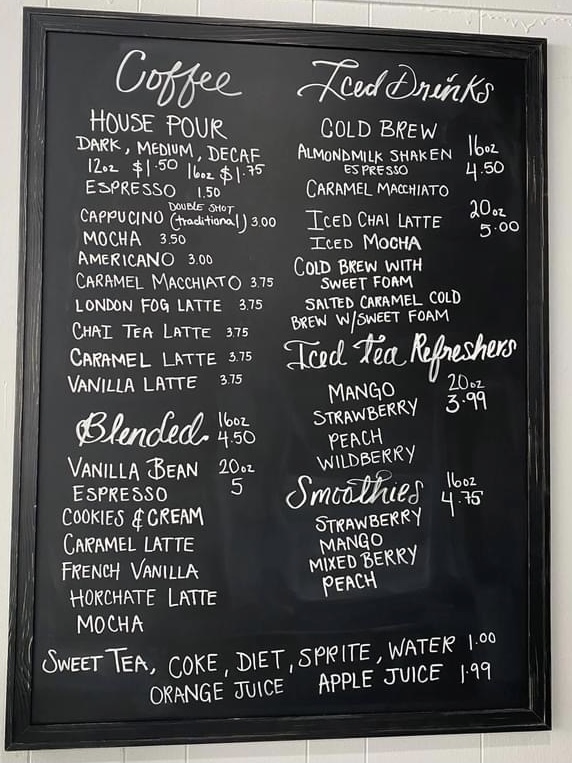 Coffee
HOUSE POUR
DARK, MEDIUM, DECAF
12oz $1.50 16oz $1.75
ESPRESSO 1.50
CAPPUCINO DOUBLE SHOT (traditional) 3.00
MOCHA 3.50
AMERICANO 3.00
CARAMEL MACCHIATO 3.75
LONDON FOG LATTE 3.75
CHAI TEA LATTE 3.75
CARAMEL LATTE 3.75
VANILLA LATTE 3.75
Blended 16oz 4.50
VANILLA BEAN 20oz
ESPRESSO 5
COOKIES & CREAM
CARAMEL LATTE
FRENCH VANILLA
HORCHATE LATTE
MOCHA
Iced Drinks
COLD BREW 16oz
ALMONDMILK SHAKEN 4.50
ESPRESSO
CARAMEL MACCHIATO
20oz
ICED CHAI LATTE 5.00
ICED MOCHA
COLD BREW WITH
SWEET FOAM
SALTED CARAMEL COLD
BREW W/SWEET FOAM
Iced Tea Refreshers
MANGO 20oz
STRAWBERRY 3.99
PEACH
WILDBERRY
Smoothies 16oz
4.75
STRAWBERRY
MANGO
MIXED BERRY
PEACH
SWEET TEA, COKE, DIET, SPRITE, WATER 1.00
ORANGE JUICE APPLE JUICE 1.99